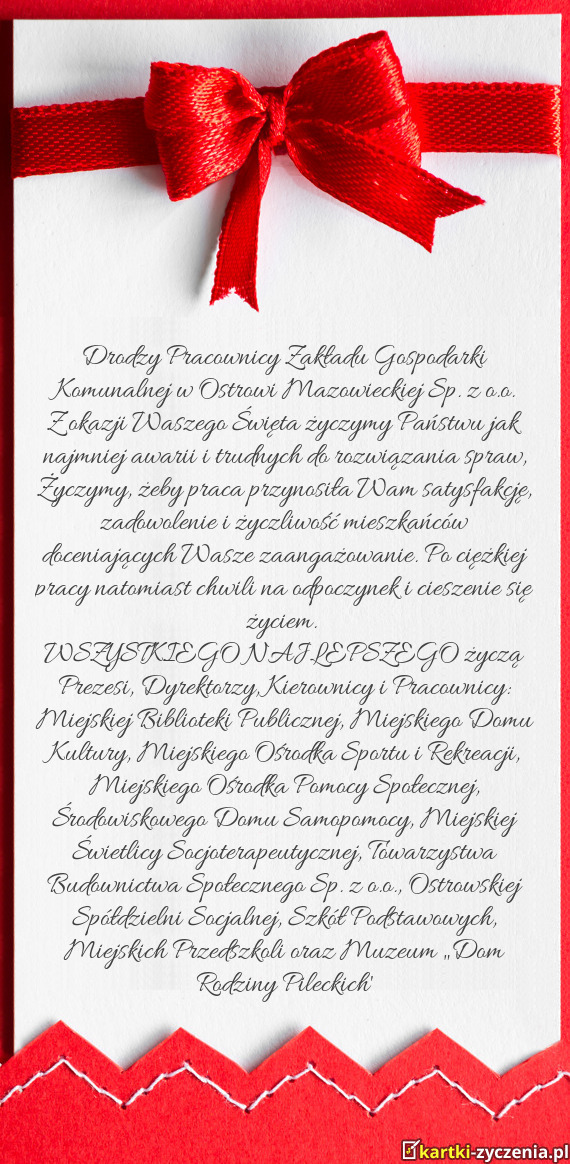 Drodzy Pracownicy Zakładu Gospodarki
Komunalnej w Ostrowi Mazowieckiej Sp. z o.o.
Z okazji Waszego Święta życzymy Państwu jak
najmniej awarii i trudnych do rozwiązania spraw,
Życzymy, żeby praca przynosiła Wam satysfakcję,
zadowolenie i życzliwość mieszkańców
doceniających Wasze zaangażowanie. Po ciężkiej
pracy natomiast chwili na odpoczynek i cieszenie się
życiem.
WSZYSTKIEGO NAJLEPSZEGO życzą
Prezesi, Dyrektorzy, Kierownicy i Pracownicy:
Miejskiej Biblioteki Publicznej, Miejskiego Domu
Kultury, Miejskiego Ośrodka Sportu i Rekreacji,
Miejskiego Ośrodka Pomocy Społecznej,
Środowiskowego Domu Samopomocy, Miejskiej
Świetlicy Socjoterapeutycznej, Towarzystwa
Budownictwa Społecznego Sp. z o.o., Ostrowskiej
Spółdzielni Socjalnej, Szkół Podstawowych,
Miejskich Przedszkoli oraz Muzeum „Dom
Rodziny Pileckich"
kartki-zyczenia.pl